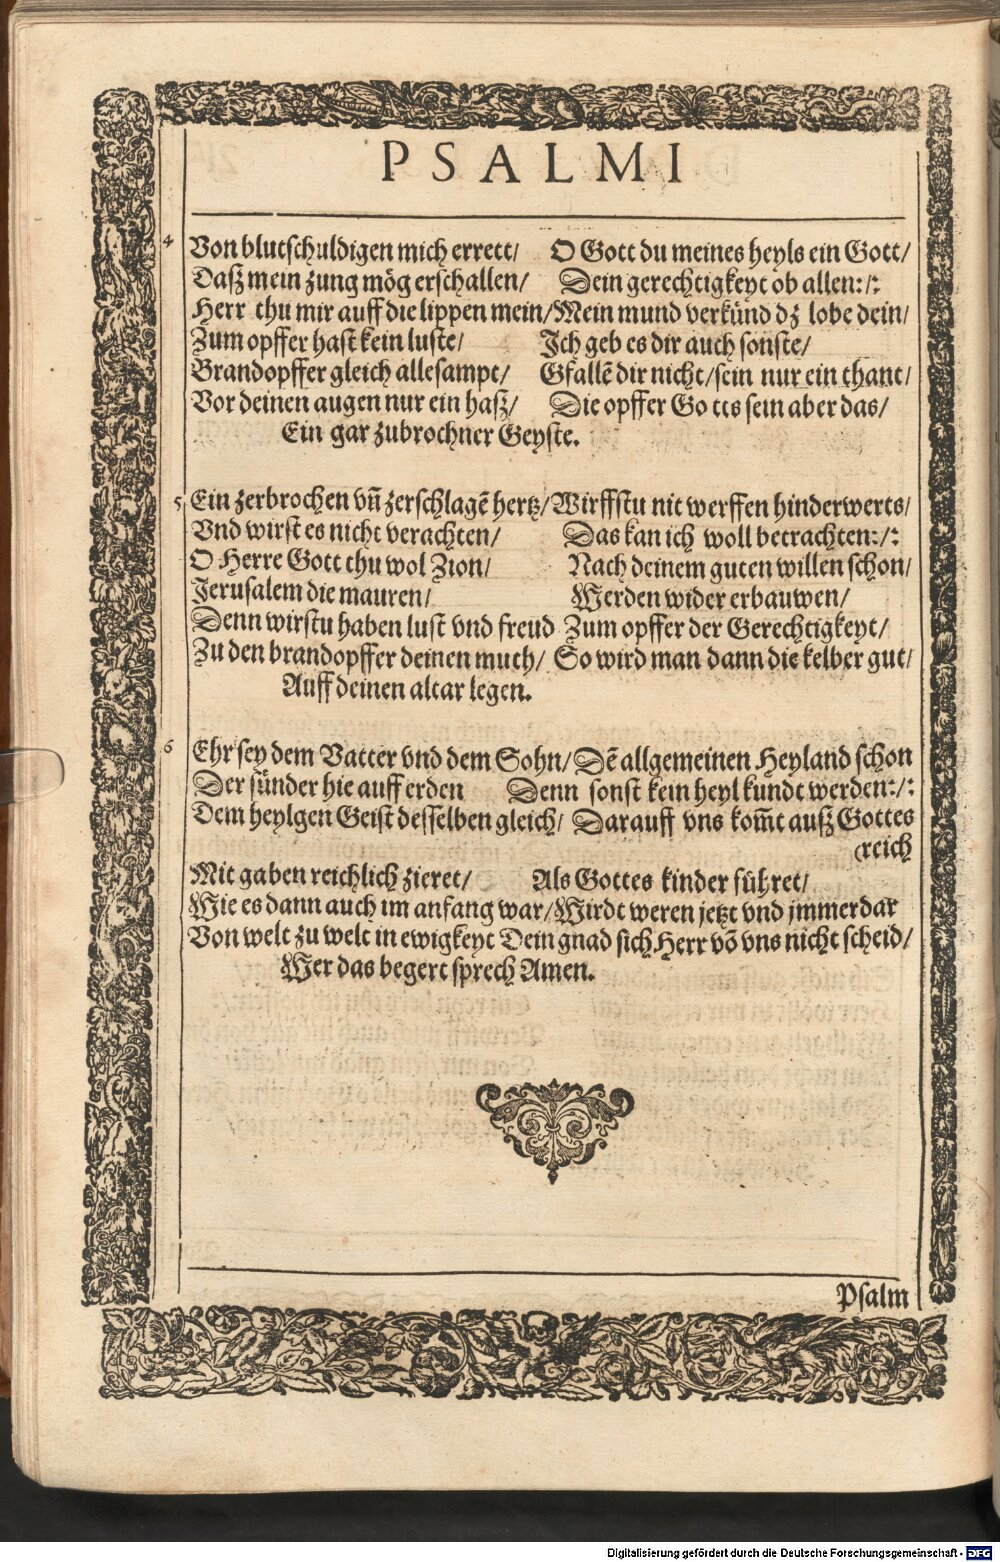 PSALMI
4 Von blutschuldigen mich errett/ O Gott du meines heyls ein Gott/
Daſz mein zung mög erschallen/ Dein gerechtigkeyt ob allen:/:
Herr thu mir auff die lippen mein/ Mein mund verkünd dz lobe dein/
Zum opffer hast kein luste/ Ich geb es dir auch sonste/
Brandopffer gleich allesampt/ Gfallẽ dir nicht/ sein nur ein thant/
Vor deinen augen nur ein haſz/ Die opffer Gotts sein aber das/
Ein gar zubrochner Geyste.
5 Ein zerbrochen vñ zerschlagẽ hertz/ Wirffstu nit werffen hinderwerts/
Vnd wirst es nicht verachten/ Das kan ich woll betrachten:/:
O Herre Gott thu wol Zion/ Nach deinem guten willen schon/
Jerusalem die mauren/ Werden wider erbauwen/
Denn wirstu haben lust vnd freud Zum opffer der Gerechtigkeyt/
Zu den brandopffer deinen muth/ So wird man dann die kelber gut/
Auff deinen altar legen.
6 Ehr sey dem Vatter vnd dem Sohn/ Dẽ allgemeinen Heyland schon
Der sünder hie auff erden Denn sonst kein heyl kundt werden:/:
Dem heylgen Geist desselben gleich/ Darauff vns kom̃t auſz Gottes
(reich
Mit gaben reichlich zieret/ Als Gottes kinder führet/
Wie es dann auch im anfang war/ Wirdt weren jetzt vnd jmmerdar
Von welt zu welt in ewigkeyt Dein gnad sich Herr võ vns nicht scheid/
Wer das begert sprech Amen.
Psalm
Digitalisierung gefördert durch die Deutsche Forschungsgemeinschaft - DFG